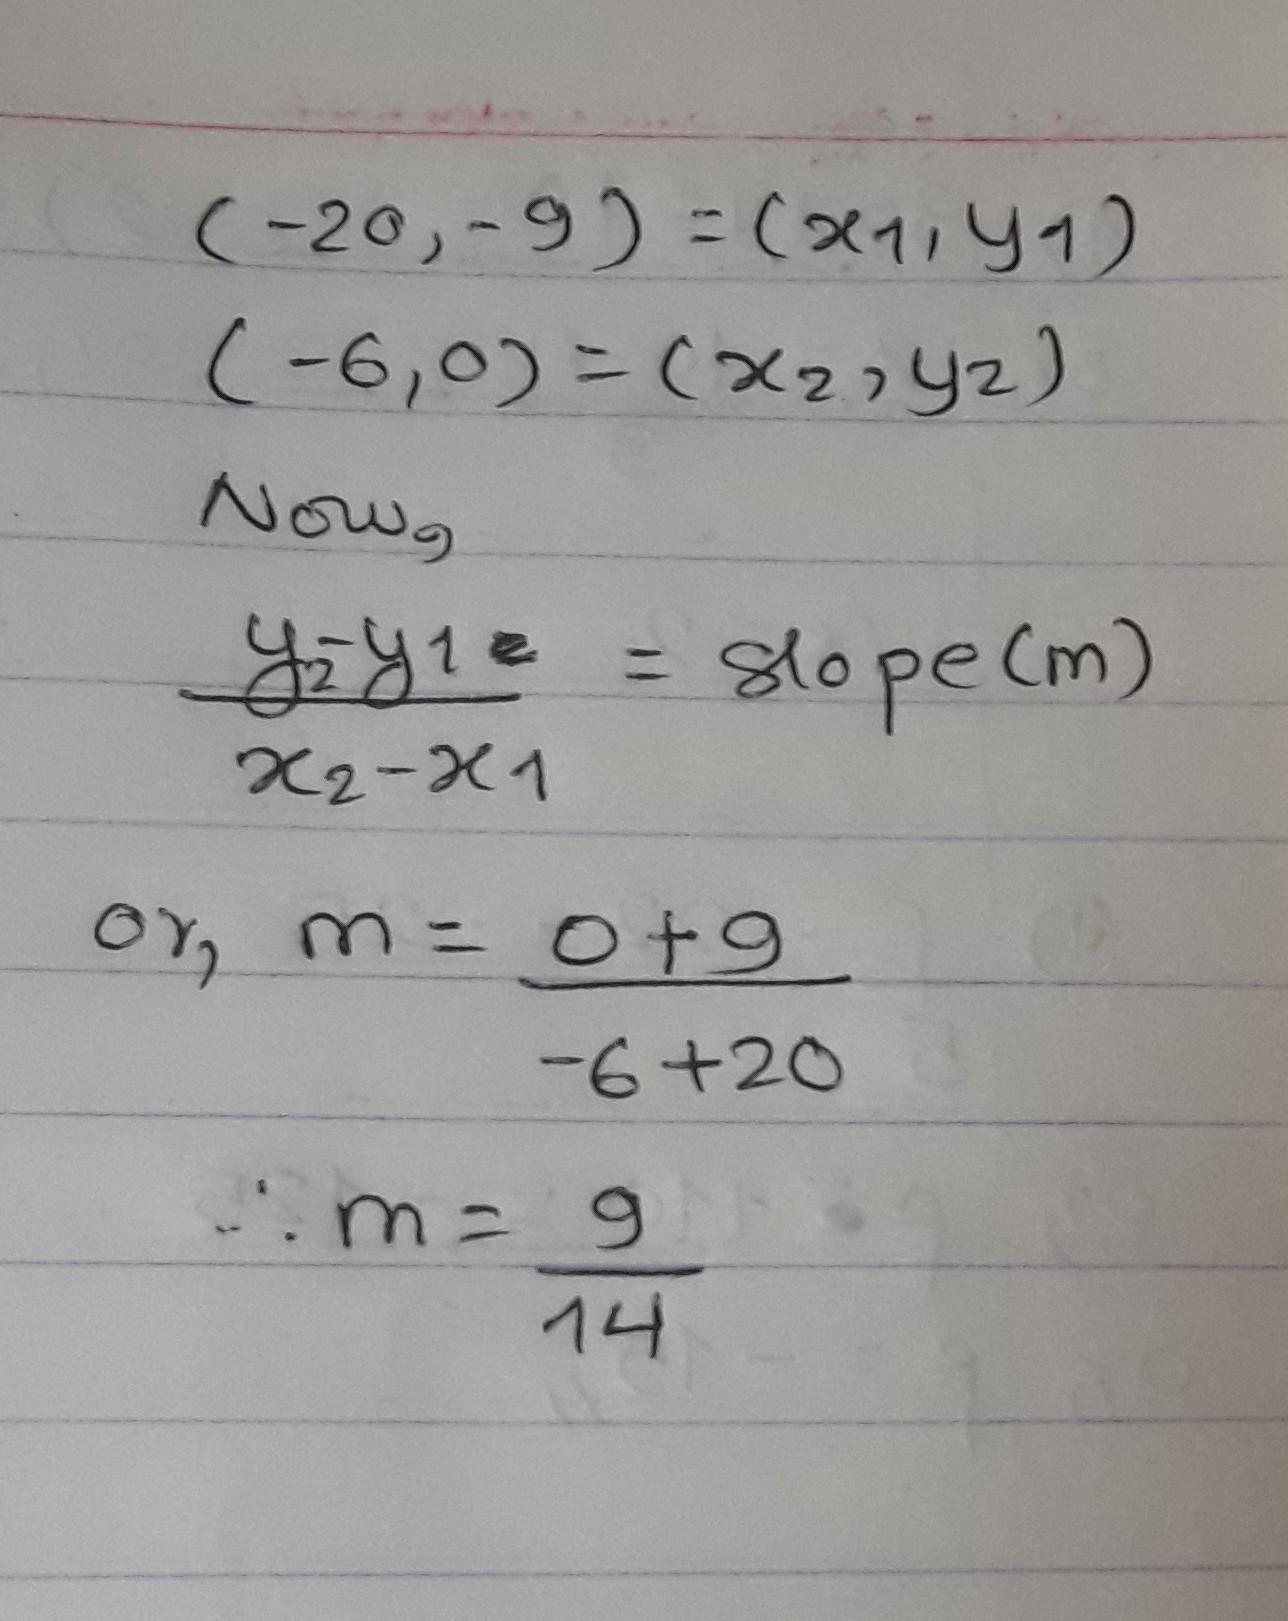 (-20,-9) = (x1, y1)
(-6,0) = (x2, y2)
Now,
y2-y1 = slope(m)
x2-x1
or, m = 0+9
-6+20
∴ m = 9
14